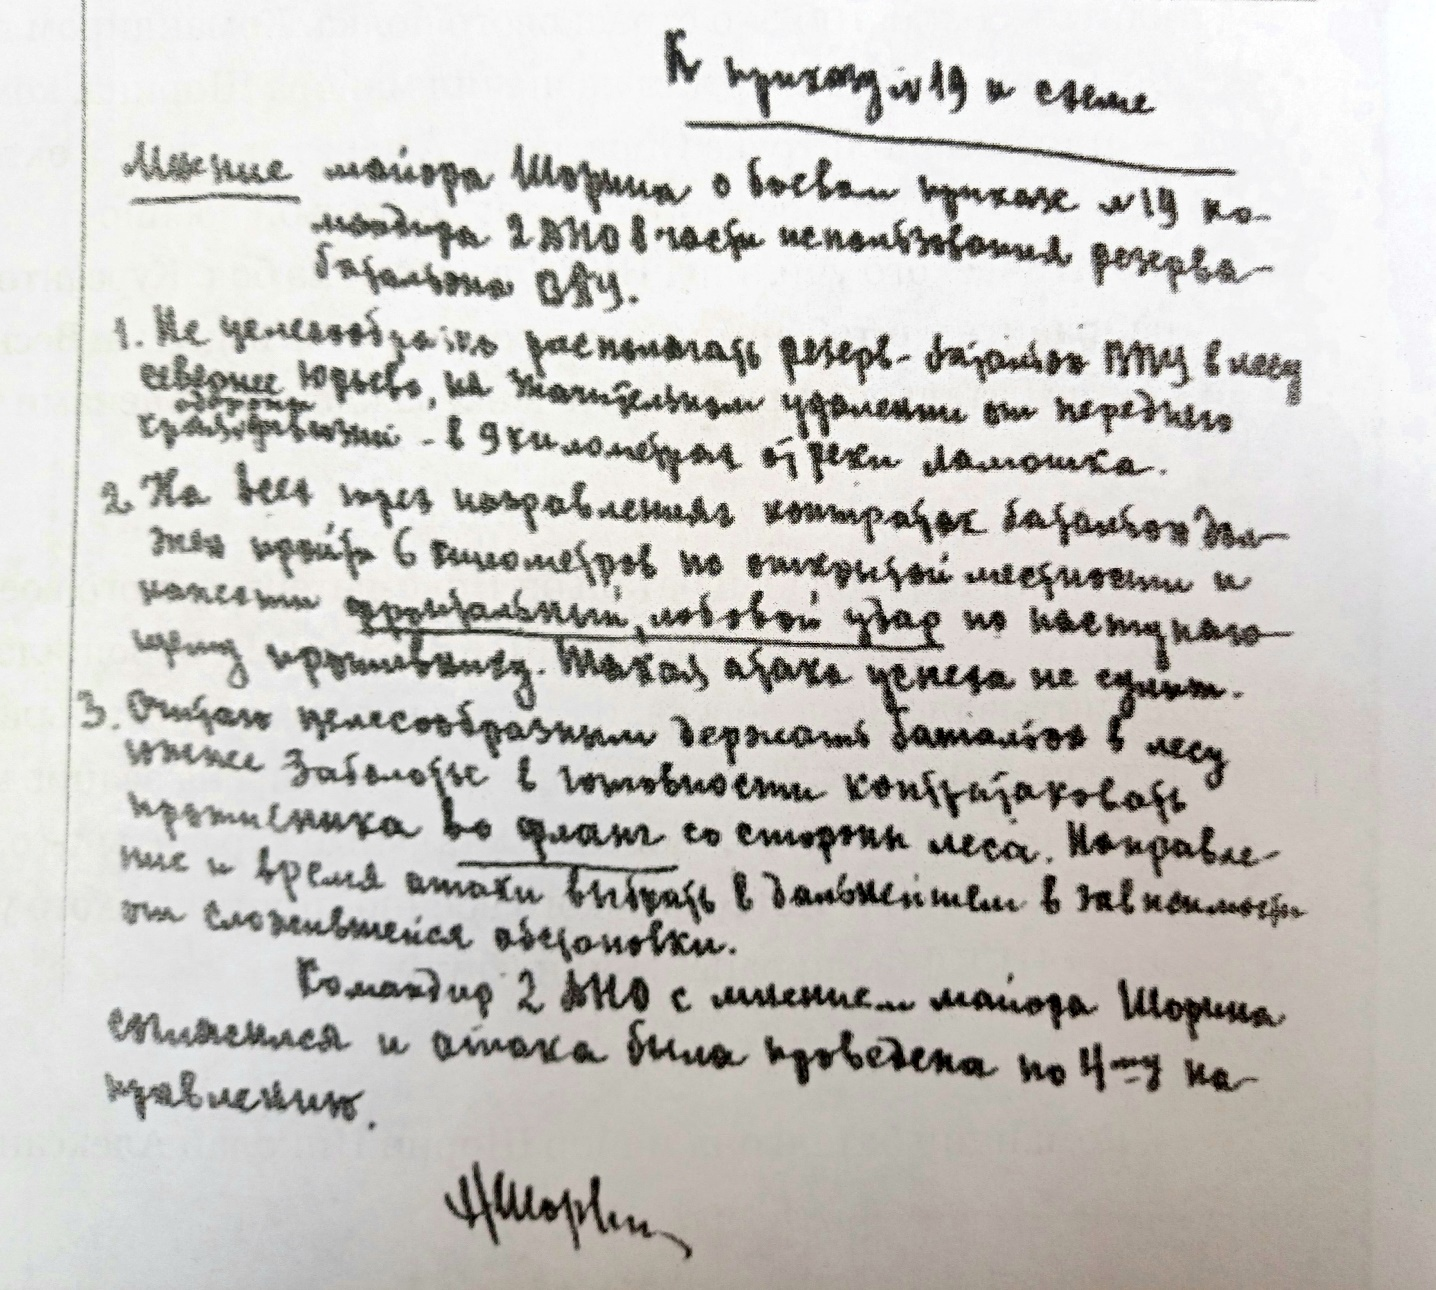 К приказу №19 и схеме
Мнение майора Шорина о боевом приказе №19 ко-
мандира 2 ДНО в части использования резерва-
батальона ВПУ.
1. Не целесообразно располагать резерв-батальон ВПУ в лесу
севернее Юрьево, на значительном удалении от переднего
обороны
края дивизии - в 9 километрах от реки Ламошка.
2. На всех трех направлениях контратак батальон дол-
жен пройти 6 километров по открытой местности и
нанести фронтальный, лобовой удар по наступаю-
щему противнику. Такая атака успеха не сулит.
3. Считаю целесообразным держать батальон в лесу
южнее Заболотье в готовности контратаковать
противника во фланг со стороны леса. Направле-
ние и время атаки выбрать в дальнейшем в зависимости
от сложившейся обстановки.
Командир 2 ДНО с мнением майора Шорина
согласился и атака была проведена по 4му на-
правлению.
АШорин